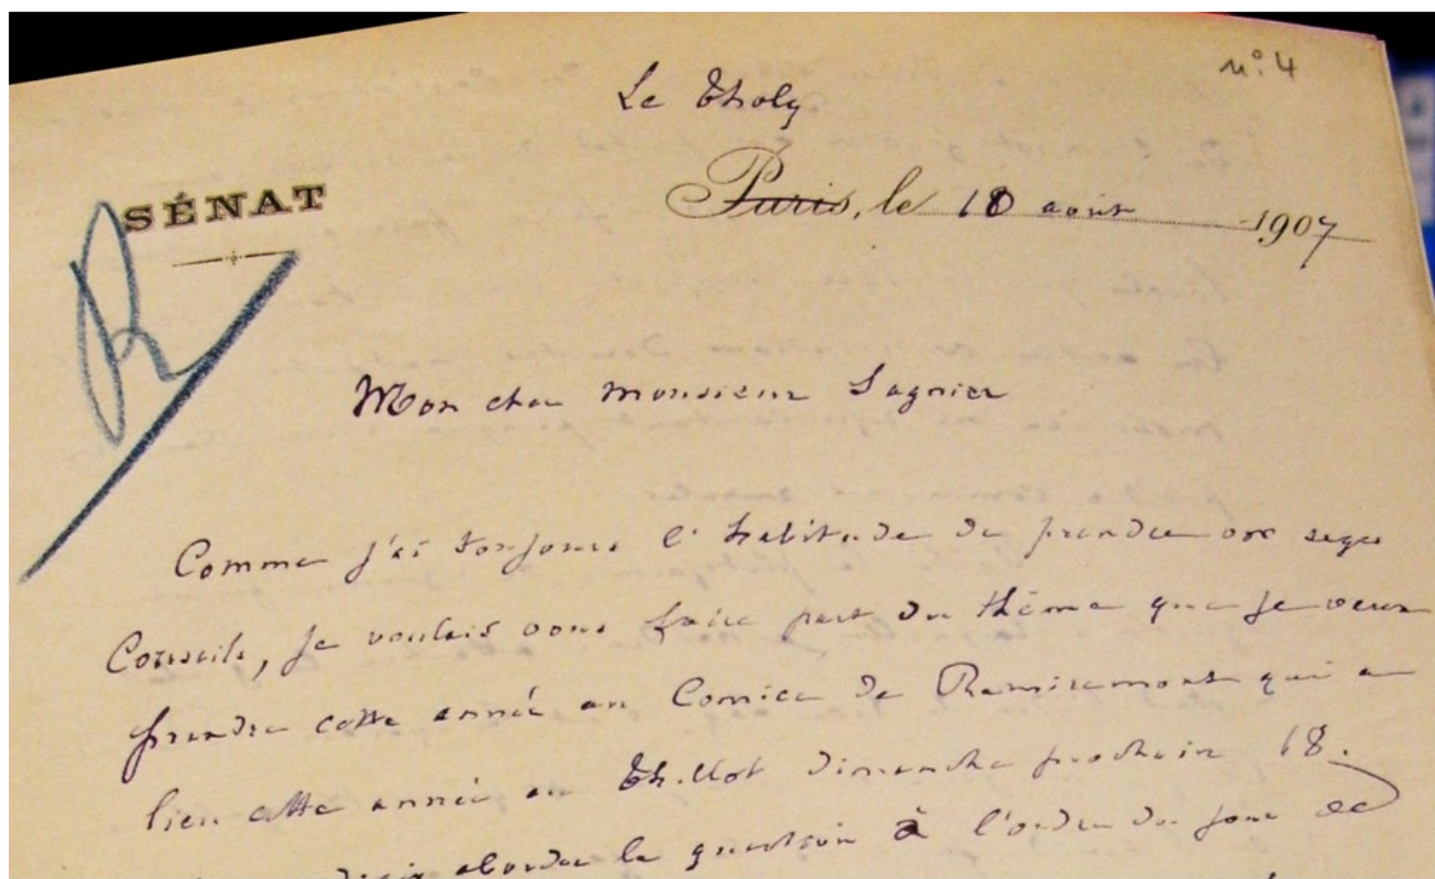 n° 4
Le Tholy
SÉNAT
Paris, le 10 août 1907
Mon cher Monsieur Sagnier
Comme j'ai toujours l'habitude de prendre vos sages
Conseils, je voulais vous faire part du thème que je veux
prendre cette année au Comice de Remiremont qui a
lieu cette année au Thillot dimanche prochain 18.
aborder la question à l'ordre du jour